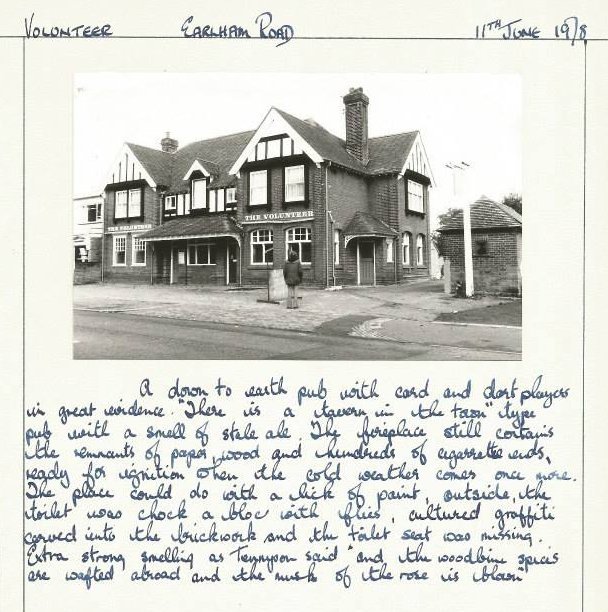 VOLUNTEER EARLHAM ROAD 11TH JUNE 1978
THE VOLUNTEER
THE VOLUNTEER
A down to earth pub with card and dart players
in great evidence. "There is a tavern in the town" type
pub with a smell of stale ale. The fireplace still contains
the remnants of paper, wood and hundreds of cigarette ends,
ready for ignition when the cold weather comes once more.
The place could do with a lick of paint, outside, the
toilet was chock a bloc with flies, cultured graffiti
carved into the brickwork and the toilet seat was missing.
Extra strong smelling as Tennyson said "and the woodbine spices
are wafted abroad and the musk of the rose is blown"